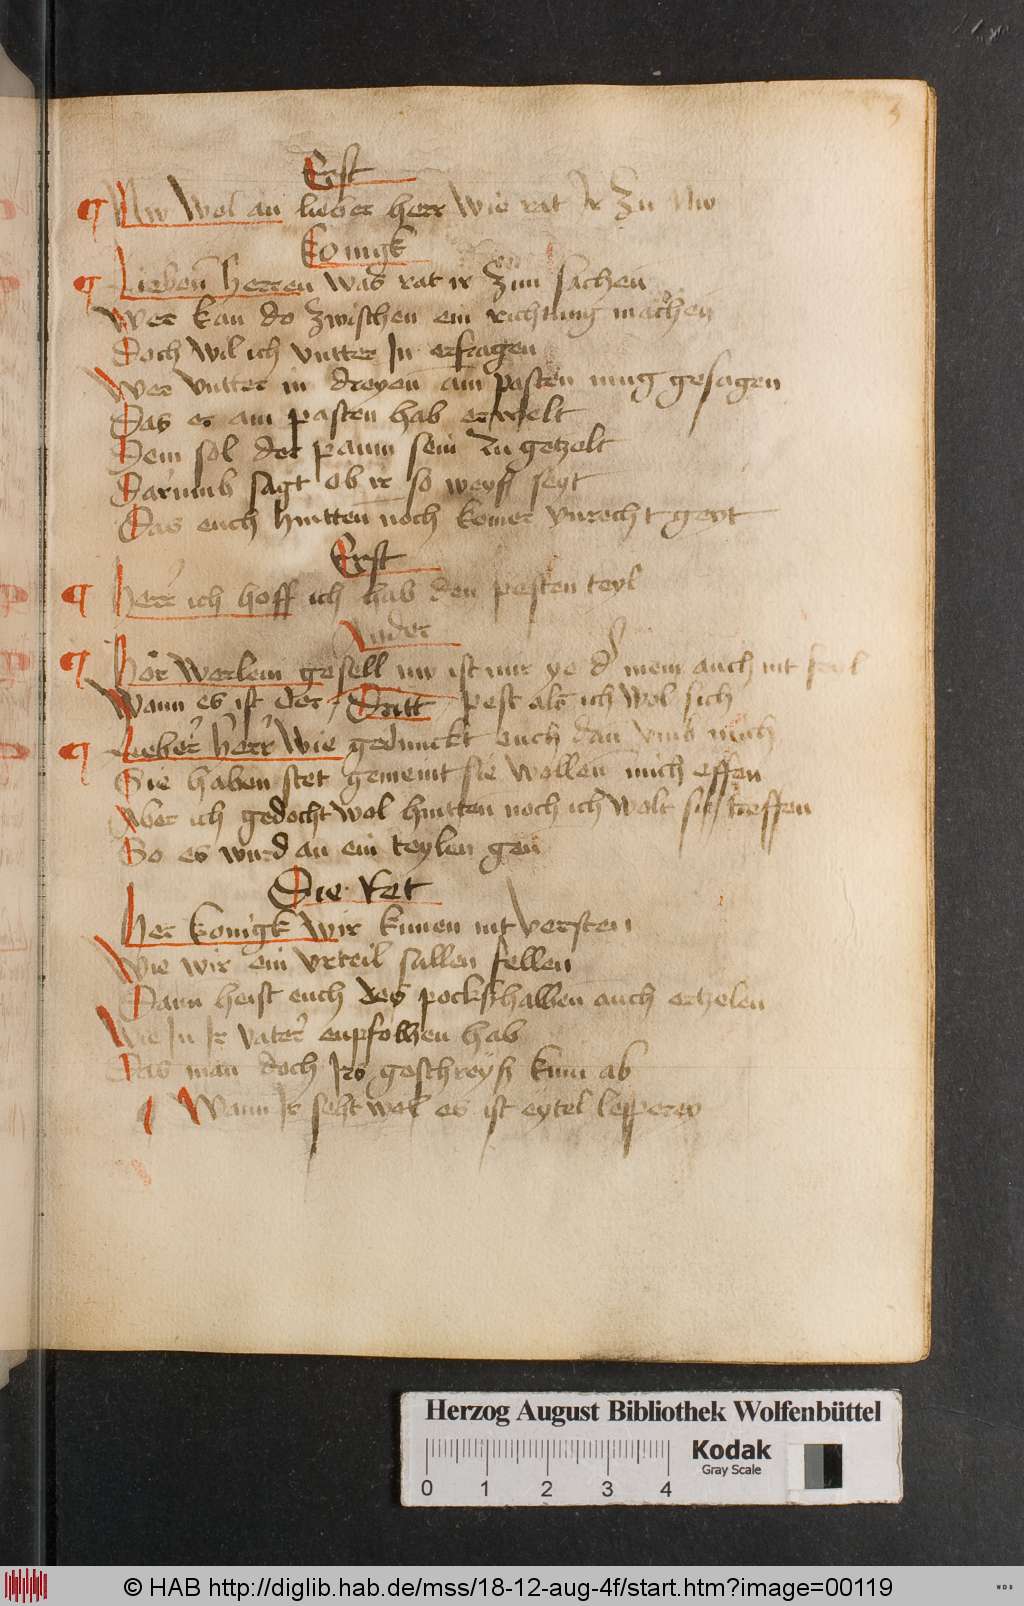 Erst
¶ Nw wol an lieber herr wie rat Ir zu nw
Konigk
¶ Lieben̄ herren was rat ir zun sachen
Wer kan do zwischen ein richtung machen
Doch wil ich vntter In erfragen
Wer vntter in dreyen̄ am pasten mug gesagen
Das er am pasten hab erwelt
Dem sol der paum sein zu getzelt
Darumb sagt ob ir so weyß seyt
Das euch hintten̄ noch komer vnrecht geyt
Erst
¶ Herr ich hoff ich hab den pesten teyl
Ander
¶ Hör worlein gesell nw ist mir ye d mein auch nit feyl
Wann es ist der / Dritt / pest als ich wol sich
¶ Lieber herr wie gedunckt euch dan vmb mich
Sie haben stet gemeint sie wollen̄ mich effen
Aber ich gedocht wol hintten̄ noch ich wolt sie treffen
So es wurd an ein teylen gen
Die Ret
Her konigk wir kunen nit versten
Wie wir ein vrteil sullen fellen
Dann heist euch des pockßhalben̄ auch ertzelen
Wie In Ir vater enpfolhen hab
Das man doch Irs geschreyß kum ab
¶ Wann Ir seht wol es ist eytel lepperey
Herzog August Bibliothek Wolfenbüttel
0 1 2 3 4
Kodak
Gray Scale
© HAB http://diglib.hab.de/mss/18-12-aug-4f/start.htm?image=00119